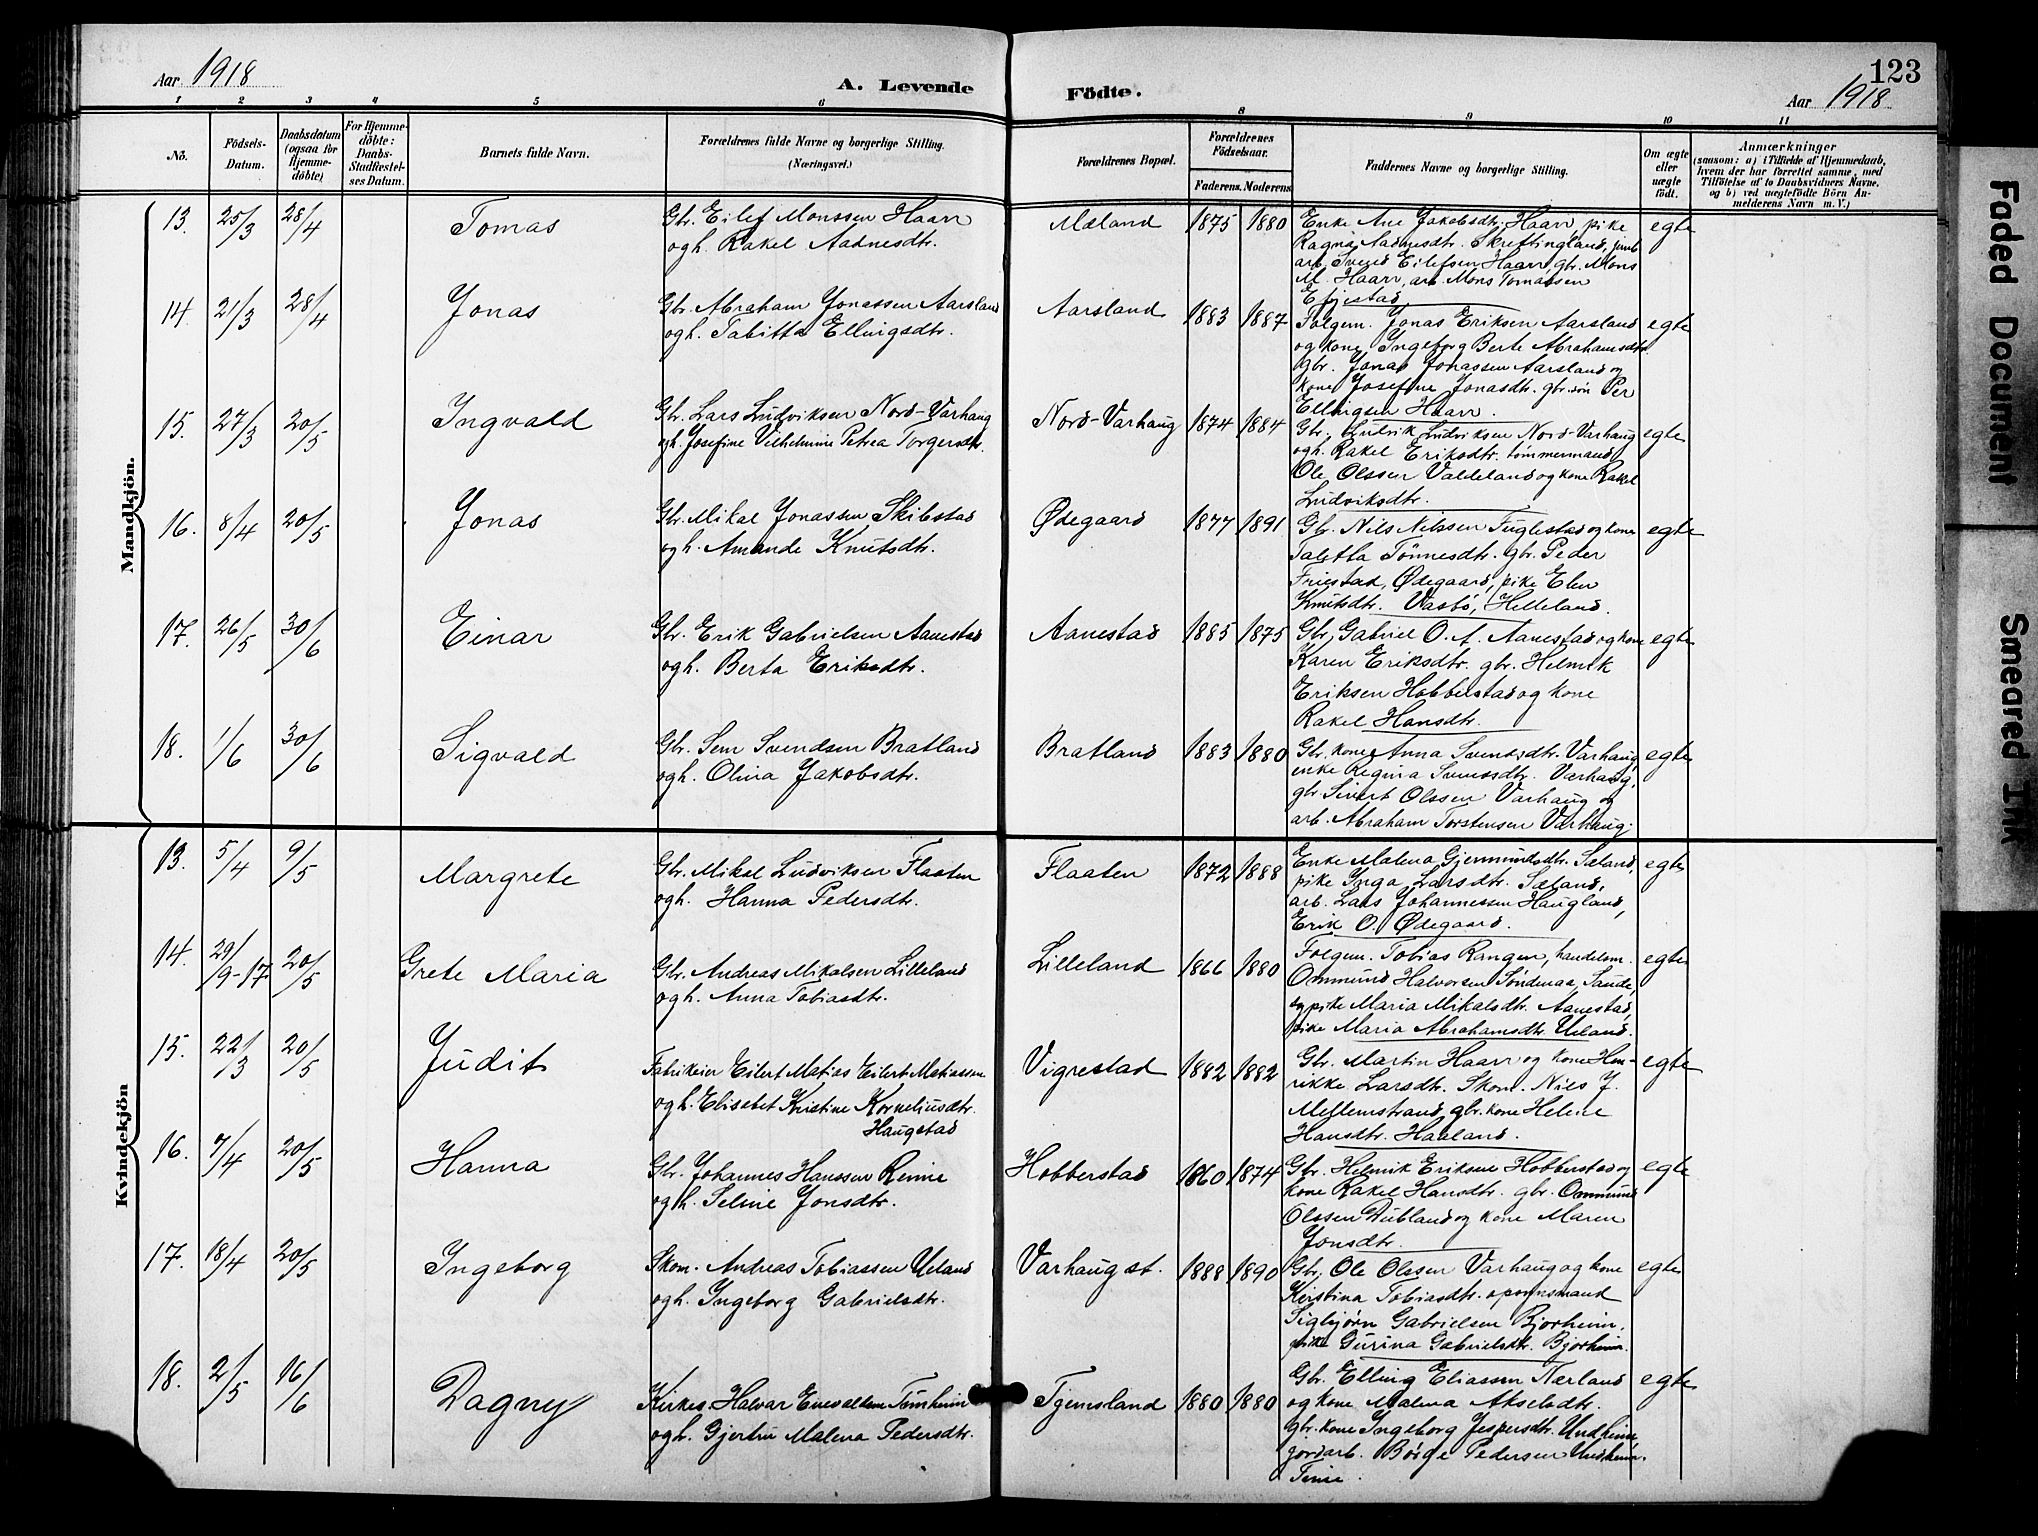 Aar 1918
A. Levende
Födte.
Aar 1918
123
1 2 3 4 5 6 8 9 10 11
Nö.
Födsels-Datum.
Daabsdatum (ogsaa for Hjemme-döbte)
For Hjemme-döbte: Daabs-Stadfæstel-ses Datum.
Barnets fulde Navn.
Forældrenes fulde Navne og borgerlige Stilling.
(Næringsvei.)
Forældrenes Bopæl.
Forældrenes Födselsaar.
Faderens. Moderens.
Faddernes Navne og borgerlige Stilling.
Om ægte eller uægte födt.
Anmærkninger
(saasom: a) i Tilfælde af Hjemmedaab, hvem der har forrettet samme, med Tilföielse af to Daabsvidners Navne, og b) ved uægtefödte Börn An-melderens Navn m. V.)
Mandkjön.
13. 25/3 28/4 Tomas
Gbr. Eilef Monssen Haarr
ogh. Rakel Aadnesdtr.
Mæland 1875 1880
Enke Ane Jakobsdtr. Haarr, pike
Ragna Aadnesdtr. Skrettingland, jernb
arb. Svend Eilefsen Haarr, gbr. Mons
M. Haarr, arb. Mons Tomassen
Efjestad
egte
14. 21/3 28/4 Jonas
Gbr. Abraham Jonassen Aarsland
ogh. Tabitta Ellingsdtr.
Aarsland 1883 1887
Folgem. Jonas Eriksen Aarsland
og kone Ingeborg Berte Abrahamsdtr.
Gbr. Jonas Jonassen Aarsland og
kone Josefine Jonasdtr. gbr.søn Per
Ellingsen Haarr.
egte
15. 27/3 20/5 Ingvald
Gbr. Lars Ludviksen Nord-Varhaug
ogh. Josefine Vilhelmine Petrea Torgersdtr.
Nord-Varhaug 1874 1884
Gbr. Ludvik Ludviksen Nord-Varhaug
ogh. Rakel Eriksdtr. tømmermand
Ole Olssen Valdeland og kone Rakel
Ludviksdtr.
egte
16. 8/4 20/5 Jonas
Gbr. Mikal Jonassen Skibstad
ogh. Amande Knutsdtr.
Ødegaard 1877 1891
Gbr. Nils Nilssen Fuglestad og kone
Taletta Tönnesdtr. gbr. Peder
Friestad, Ødegaard, pike Elen
Knutsdtr. Vasbö, Helleland.
egte
17. 26/5 30/6 Einar
Gbr. Erik Gabrielsen Aanestad
ogh. Berta Eriksdtr.
Aanestad 1885 1875
Gbr. Gabriel O. A. Aanestad og kone
Karen Eriksdtr. gbr. Helmik
Eriksen Hobberstad og kone
Rakel Hansdtr.
egte
18. 1/6 30/6 Sigvald
Gbr. Sem Svendsen Bratland
ogh. Olina Jakobsdtr.
Bratland 1883 1880
Gbr. kone Anna Svensdtr. Varhaug
enke Regina Svensdtr. Varhaug,
gbr. Sivert Olssen Varhaug og
arb. Abraham Torstensen Varhaug.
egte
Kvindekjön
13. 5/4 9/5 Margrete
Gbr. Mikal Ludviksen Flaaten
ogh. Hanna Pedersdtr.
Flaaten 1872 1888
Enke Malena Gjermundsdtr. Sæland,
pike Inga Larsdtr. Sæland,
arb. Lars Johannessen Haugland,
Erik O. Ødegaard.
egte
14. 29/9-17 20/5 Grete Maria
Gbr. Andreas Mikalsen Lilleland
ogh. Anna Tobiasdtr.
Lilleland 1866 1880
Folgem. Tobias Rangen, handelsm.
Ommund Halvorsen Söndenaa, Sande,
og pike Maria Mikalsdtr. Aanestad,
pike Maria Abrahamsdtr. Ueland.
egte
15. 22/3 20/5 Judit
Fabrikeier Eilert Matias Eilert Matiassen
ogh. Elisabet Kristine Korneliusdtr.
Haugstad
Vigrestad 1882 1882
Gbr. Martin Haarr og kone Hen-
rikke Larsdtr. Skom. Nils J.
Mellemstrand gbr. kone Helene
Hansdtr. Haaland.
egte
16. 7/4 20/5 Hanna
Gbr. Johannes Hanssen Reime
ogh. Seline Jonsdtr.
Hobberstad 1860 1874
Gbr. Helmik Eriksen Hobberstad og
kone Rakel Hansdtr. gbr. Ommund
Olssen Dubland og kone Maren
Jonsdtr.
egte
17. 18/4 20/5 Ingeborg
Skom. Andreas Tobiassen Ueland
ogh. Ingeborg Gabrielsdtr.
Varhaug st. 1888 1890
Gbr. Ole Olssen Varhaug og kone
Kirstina Tobiasdtr. opsynsmand
Sigbjørn Gabrielsen Bjorheim,
pike Gurina Gabrielsdtr. Bjorheim.
egte
18. 2/5 16/6 Dagny
Kirkes. Halvar Enevaldsen Tunheim
ogh. Gjertru Malena Pedersdtr.
Tgemsland 1880 1880
Gbr. Elling Eliassen Nærland
og kone Malena Akseladtr.
gbr. kone Ingeborg Jespersdtr. Undheim
jordarb. Børge Pedersen Undheim.
Time.
egte
Faded Document
Smeared Ink